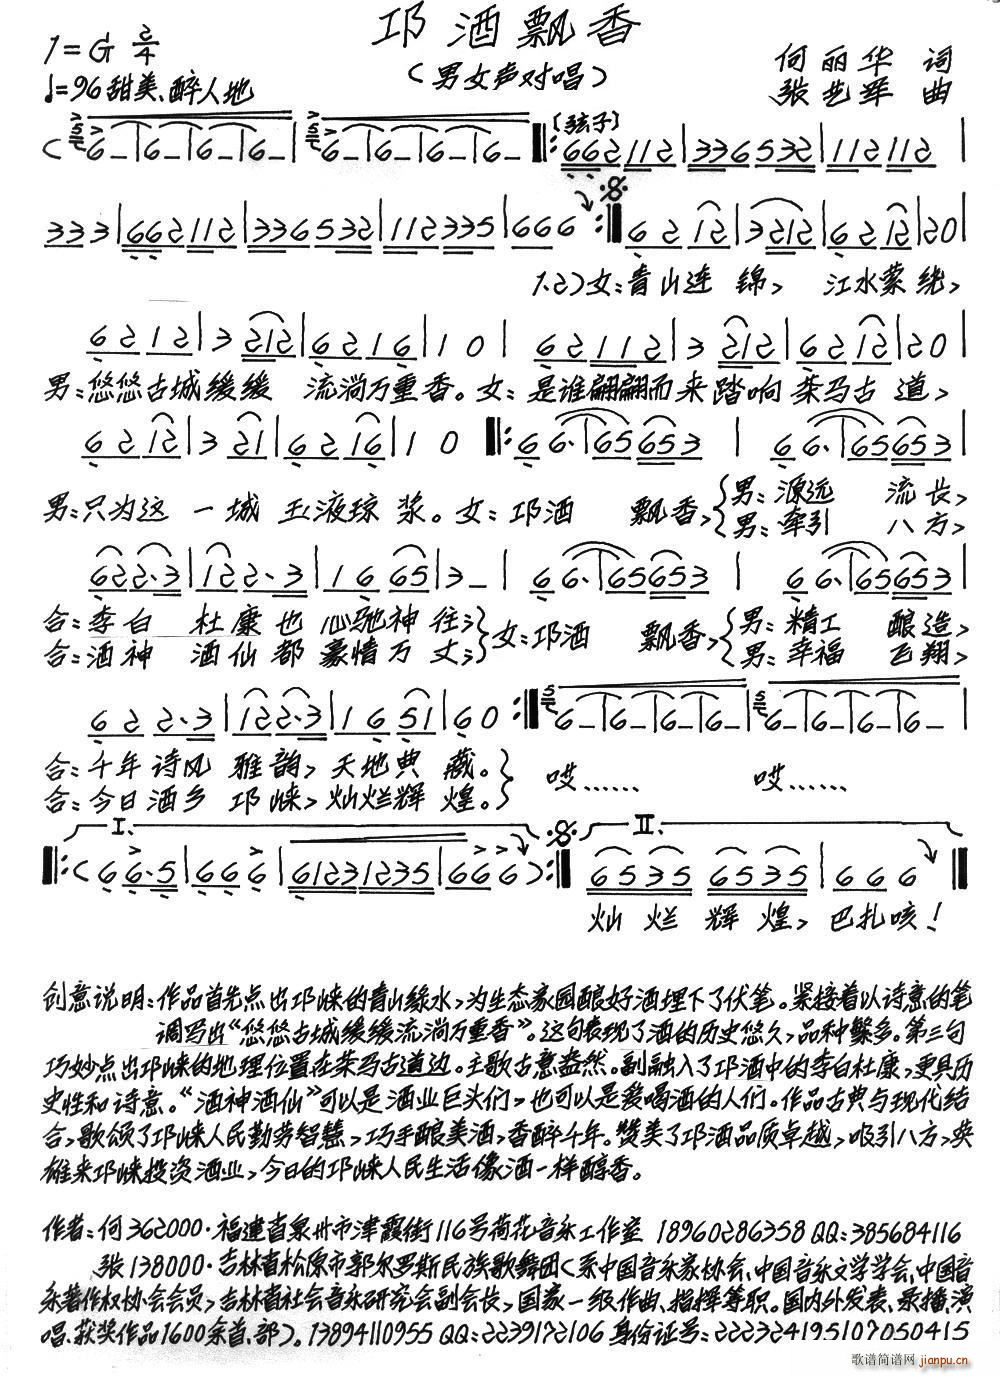 邛酒飘香
1=G 2/4
(男女声对唱)
何丽华 词
♩=96 甜美、醉人地
张艺军 曲
(6 – | 6 – | 6 – | 6 – | 6 – | 6 – | 6 – | 6 – ‖: [弦子] 662 112 | 336 532 | 112 112 |
33 3 | 662 112 | 336 532 | 112 335 | 66 6 :‖ 6 2 12 | 3 212 | 6 2 12 | 20 |
1.2)女:青山连 锦, 江水萦绕,
6 2 1 2 | 3 212 | 6 2 1 6 | 1 0 | 6 2 1 1 2 | 3 212 | 6 2 12 | 20 |
男:悠悠古城缓缓 流淌万重香。女:是谁翩翩而来踏响 茶马古 道,
6 2 12 | 3 21 | 6 2 16 | 1 0 ‖: 6 6· | 65 653 | 6 6· | 65 653 |
男:只为这 一城 玉液琼 浆。女:邛酒 飘香,{男:源远 流长,
男:牵引 八方,
622·3 | 122·3 | 1 6 65 | 3 – | 6 6· | 65 653 | 6 6· | 65 653 |
合:李白 杜康也 心驰神 往;}女:邛酒 飘香,{男:精工 酿造,
合:酒神 酒仙都 豪情万 丈;} 男:幸福 飞翔,
6 2 2·3 | 122·3 | 1 6 51 | 60 :‖ 6 – | 6 – | 6 – | 6 – | 6 – | 6 – | 6 – | 6 – |
合:千年诗风 雅韵, 天地典 藏。} 哎…… 哎……
合:今日酒乡 邛崃, 灿烂辉 煌。}
I. II.
‖: (6 6·5 | 66 6 | 6123 1235 | 66 6) :‖ 6535 6535 | 66 6 ‖
灿 烂 辉 煌, 巴扎咳!
创意说明:作品首先点出邛崃的青山绿水,为生态家园酿好酒埋下了伏笔。紧接着以诗意的笔
调写出“悠悠古城缓缓流淌万重香”。这句表现了酒的历史悠久,品种繁多。第三句
巧妙点出邛崃的地理位置在茶马古道边。主歌古意盎然。副融入了邛酒中的李白杜康,更具历
史性和诗意。“酒神酒仙”可以是酒业巨头们,也可以是爱喝酒的人们。作品古典与现代结
合,歌颂了邛崃人民勤劳智慧,巧手酿美酒,香醉千年。赞美了邛酒品质卓越,吸引八方,英
雄来邛崃投资酒业,今日的邛崃人民生活像酒一样醇香。
作者:何362000·福建省泉州市津霞街116号荷花音乐工作室 18960286358 QQ:385684116
张138000·吉林省松原市郭尔罗斯民族歌舞团(系中国音乐家协会、中国音乐文学学会、中国音
乐著作权协会会员,吉林省社会音乐研究会副会长,国家一级作曲、指挥等职。国内外发表、录播、演
唱、获奖作品1600余首、部)。13894110955 QQ:2239172106 身份证号:222324195107050415
歌谱简谱网 jianpu.cn